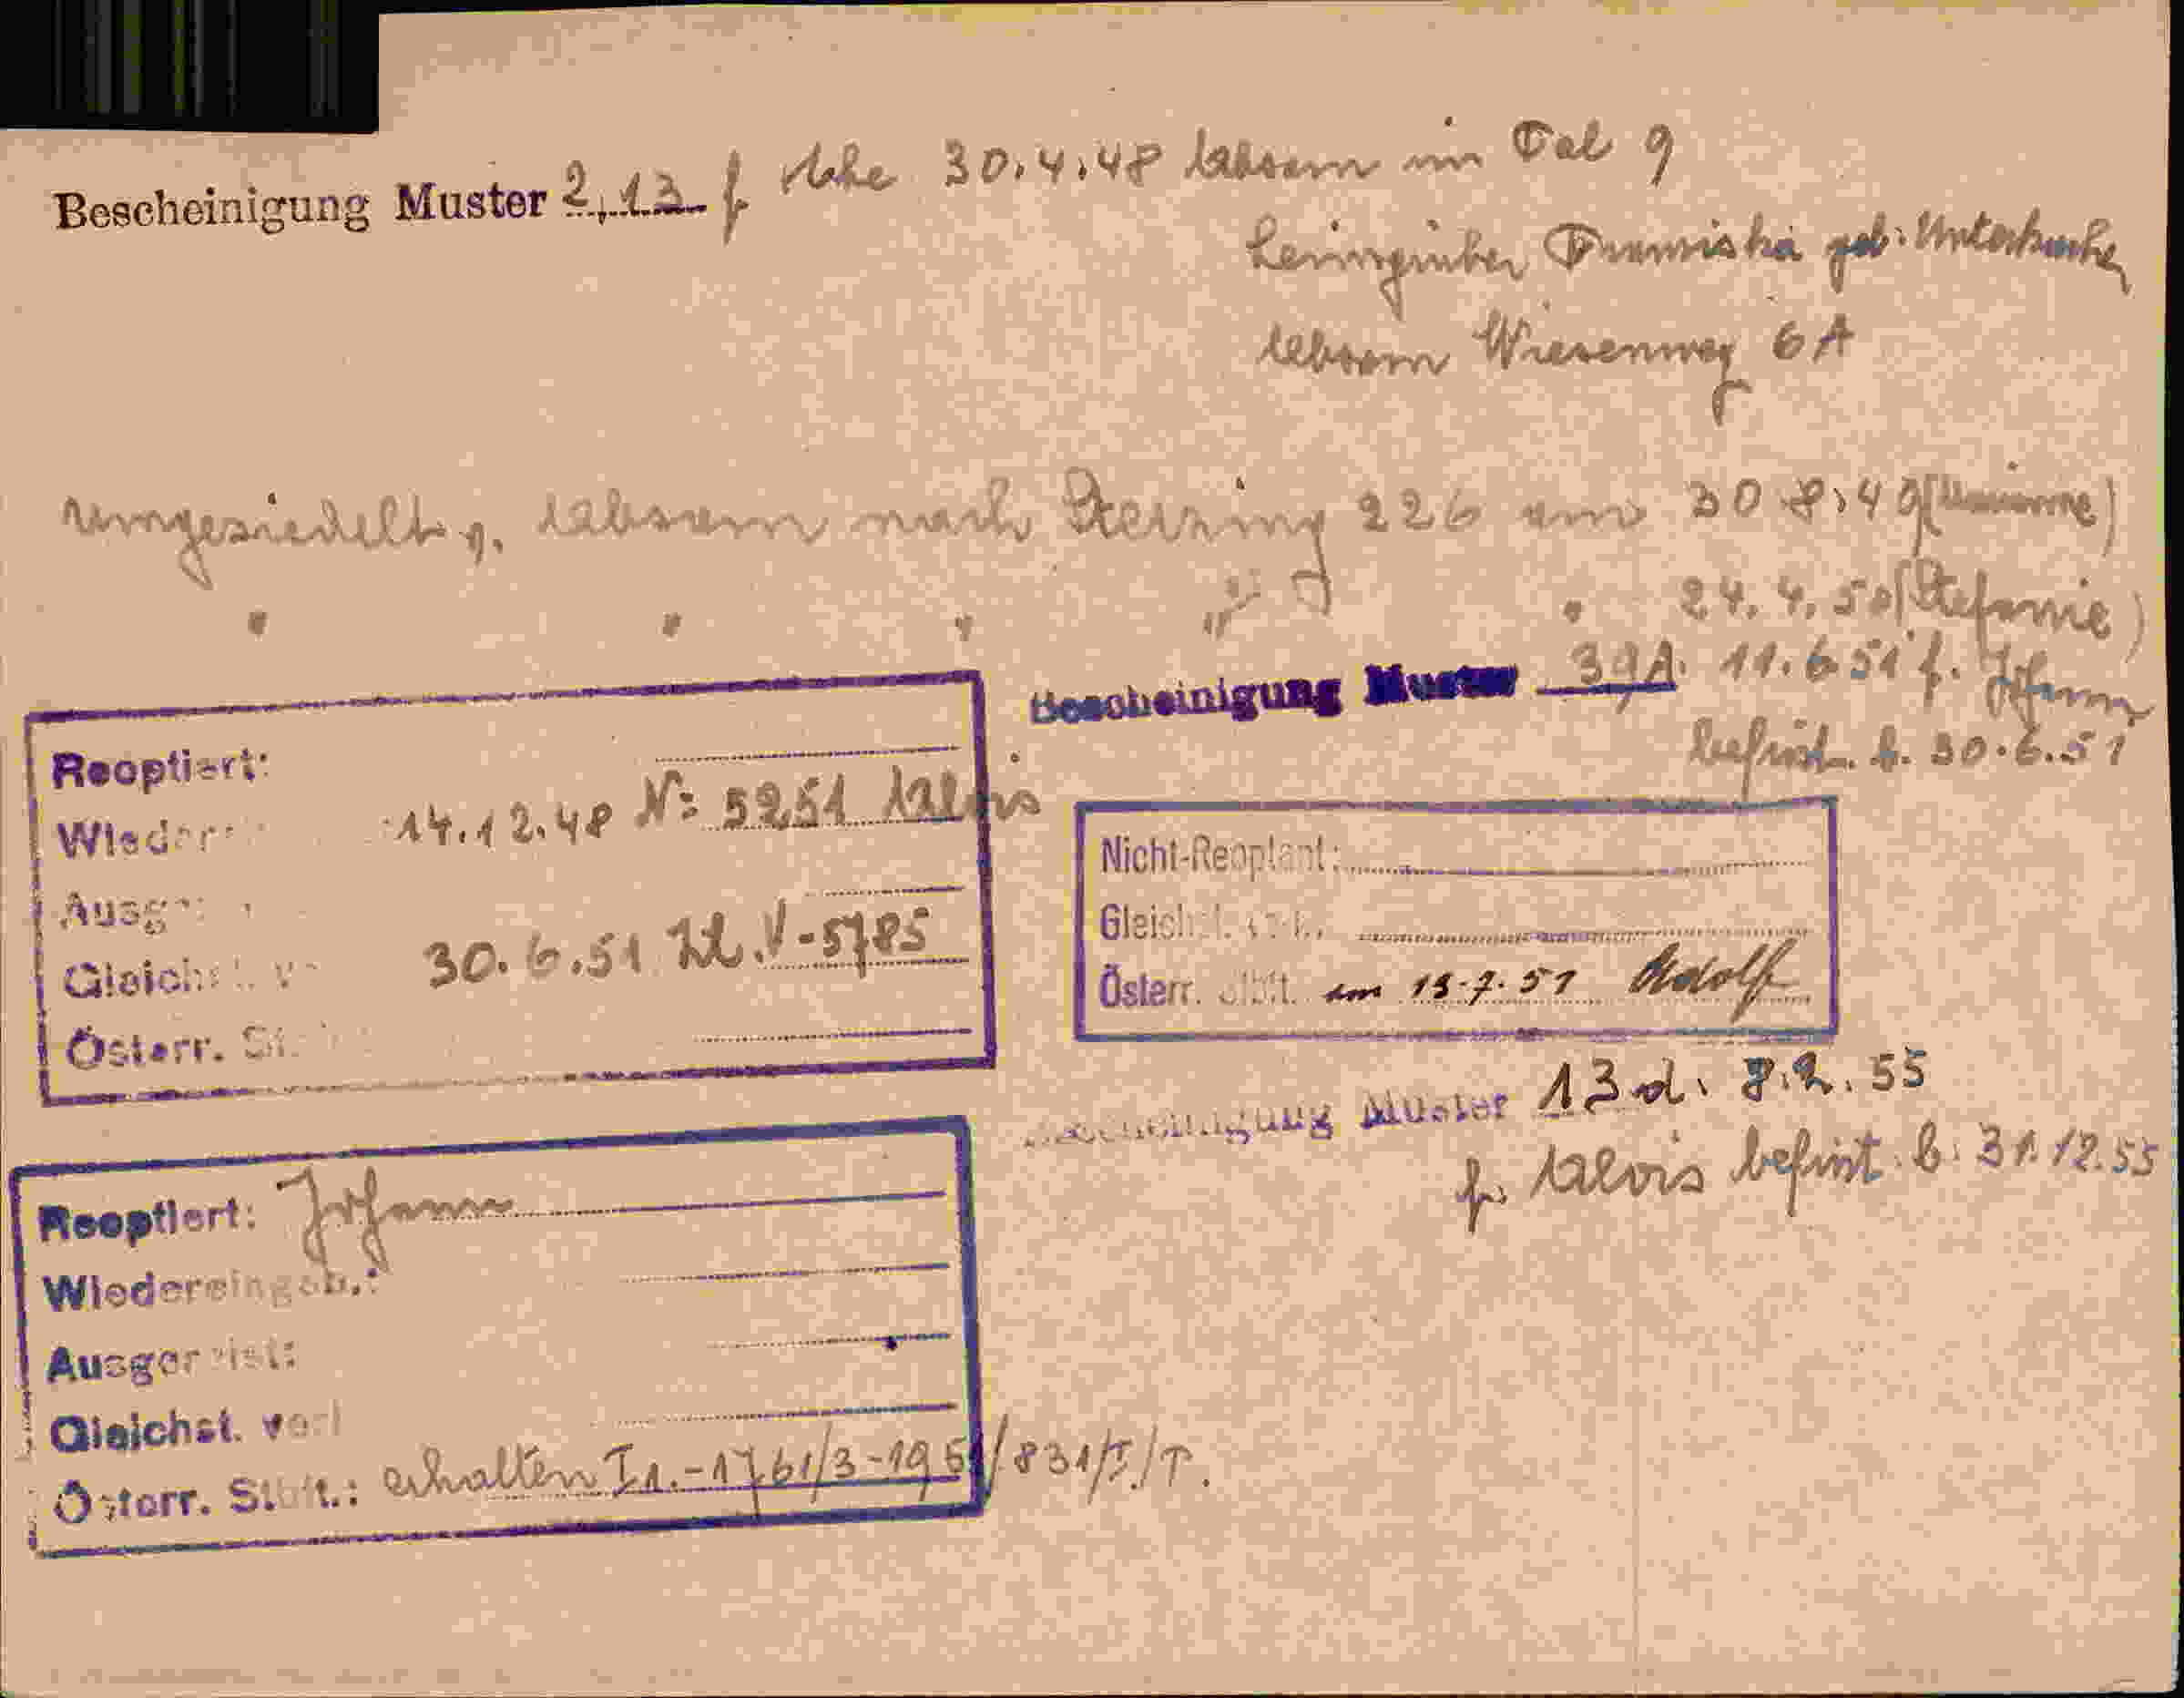 Bescheinigung Muster 2,13 f. Abs. 30.4.48 Absam im Tal 9
Leimgruber Franziska geb. Unterkircher
Absam Wiesenweg 6A
umgesiedelt v. Absam nach Sterzing 226 am 30.8.49
" " " " " 24.4.50 (Stefanie)
Bescheinigung Muster 39A. 11.6.51 f. Johann
befrist. b. 30.6.51
Reoptiert:
Wieder 14.12.48 N: 5251 Alois
Ausge
Gleichst. v 30.6.51 Zl. V-5785
Österr. St.
Nicht-Reoptant:
Gleichst.
Österr. Stbft. am 13.7.51 Adolf
Bescheinigung Muster 13d. 8.2.55
f. Alois befrist. b. 31.12.55
Reoptiert: Johann
Wiedereingeb.:
Ausgereist:
Gleichst. verl
Österr. Stbft.: erhalten I1.-1761/3-1951/831/I./T.